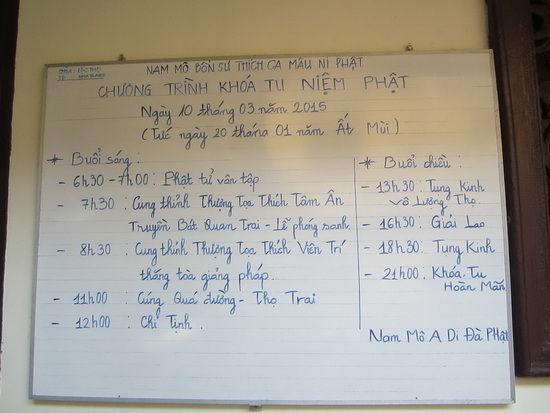 NAM MÔ BỔN SƯ THÍCH CA MÂU NI PHẬT
CHƯƠNG TRÌNH KHÓA TU NIỆM PHẬT
Ngày 10 tháng 03 năm 2015
(Tức ngày 20 tháng 01 năm Ất Mùi)
* Buổi sáng:
- 6h30 - 7h00: Phật tử vân tập
- 7h30 : Cung thỉnh Thượng Tọa Thích Tâm Ân
Truyền Bát Quan Trai - Lễ phóng sanh.
- 8h30 : Cung thỉnh Thượng Tọa Thích Viên Trí
thăng tòa giảng pháp.
- 11h00 : Cúng Quá đường - Thọ Trai
- 12h00 : Chỉ Tịnh.
* Buổi chiều:
- 13h30: Tụng Kinh
Vô Lượng Thọ.
- 16h30: Giải Lao
- 18h30: Tụng Kinh
- 21h00: Khóa Tu
Hoàn Mãn
Nam Mô A Di Đà Phật